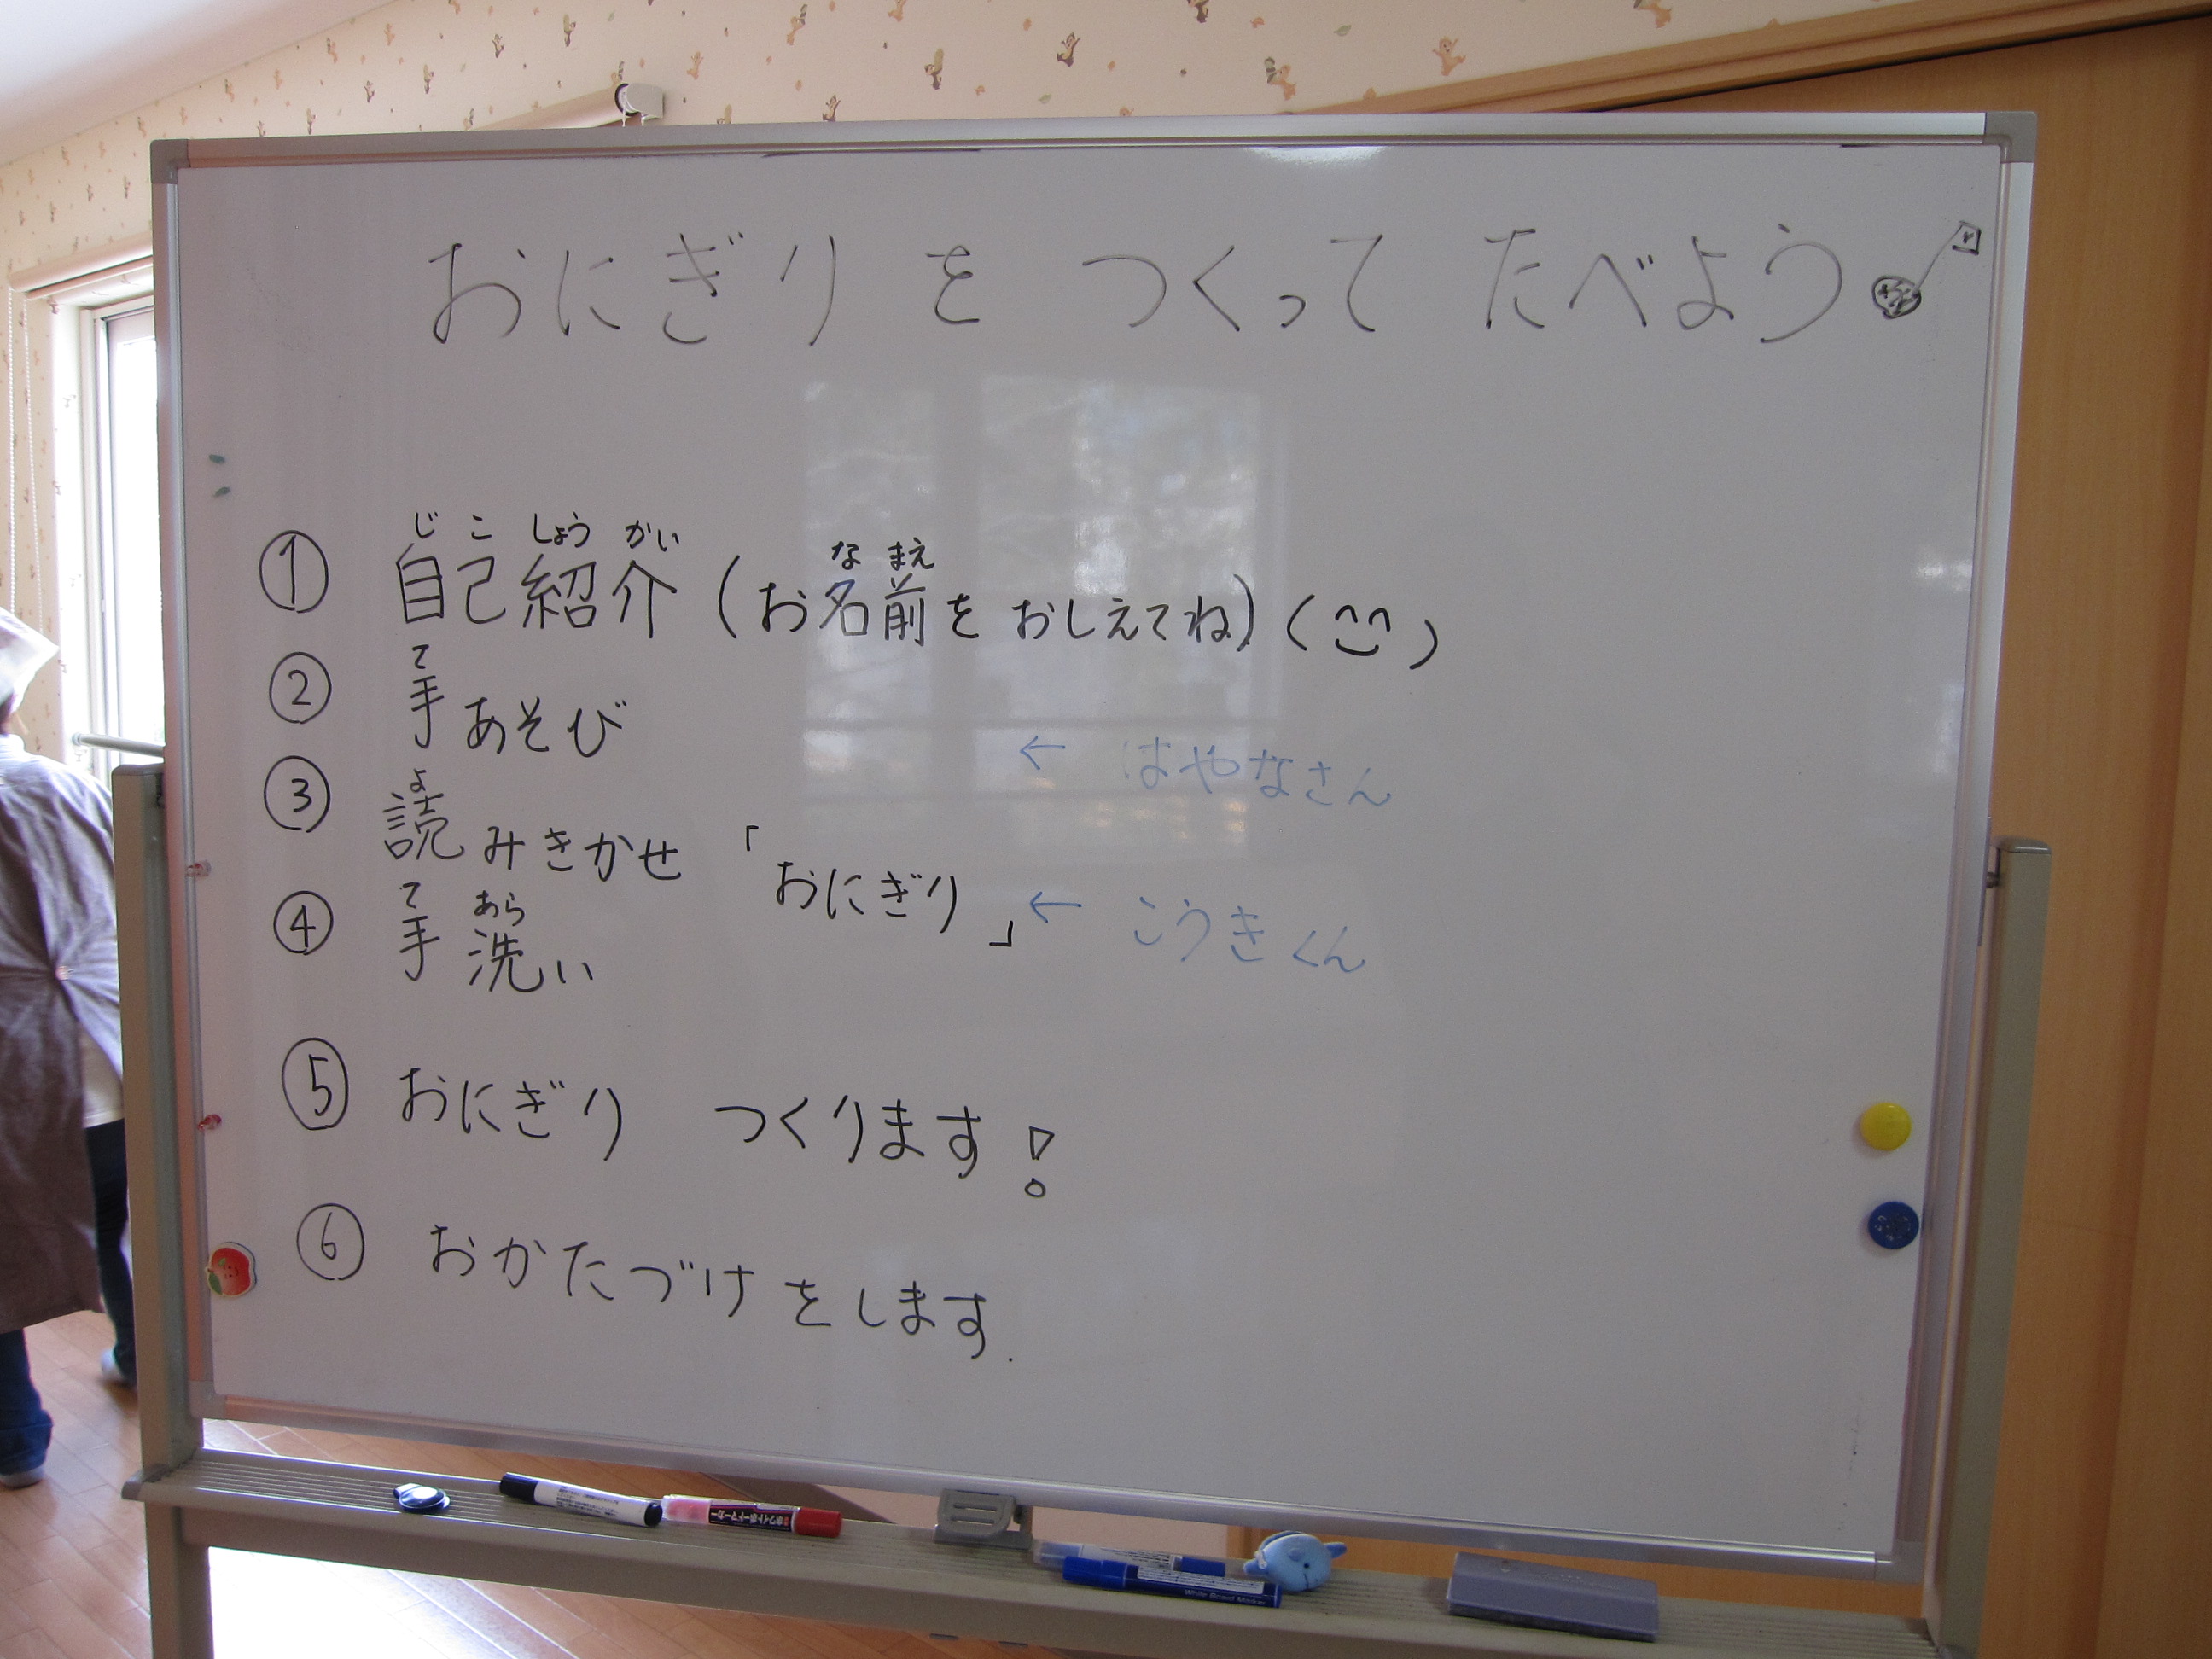 おにぎり を つくって たべよう
① 自己紹介(お名前を おしえてね)(^^)
じ こ しょう かい
な まえ
② 手あそび
て
← はやなさん
③ 読みきかせ 「おにぎり」 ← こうきくん
よ
④ 手洗い
て あら
⑤ おにぎり つくります!
⑥ おかたづけをします.
ホワイトボードマーカー
White Board Marker